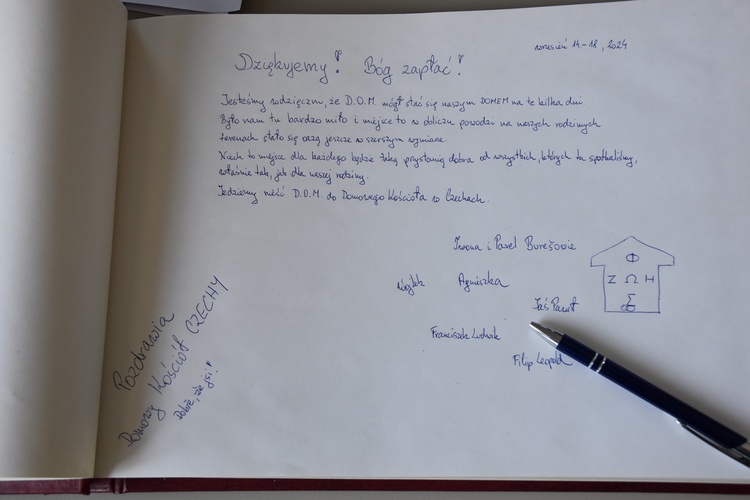 wrzesień 14-18, 2024
Dziękujemy! Bóg zapłać!
Jesteśmy wdzięczni, że D.O.M. mógł stać się naszym DOMEM na te kilka dni.
Było nam tu bardzo miło i miejsce to w obliczu powodzi na naszych rodzinnych
terenach stało się oazą jeszcze w szerszym wymiarze.
Niech to miejsce dla każdego będzie taką przystanią dobra od wszystkich, których tu spotkaliśmy,
właśnie tak, jak dla naszej rodziny.
Jedziemy nieść D.O.M. do Domowego Kościoła w Czechach.
Iwona i Pavel Burešovie
Wojtek Agnieszka
Jaś Pavel
Franciszek Ludwik
Filip Leopold
Φ
Ζ Ω Η
Σ
Pozdrawia
Domowy Kościół CZECHY
Dobrze, że jsi!